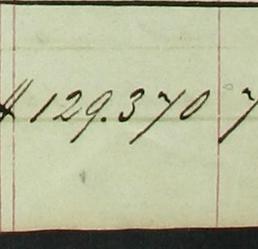 129.370 7